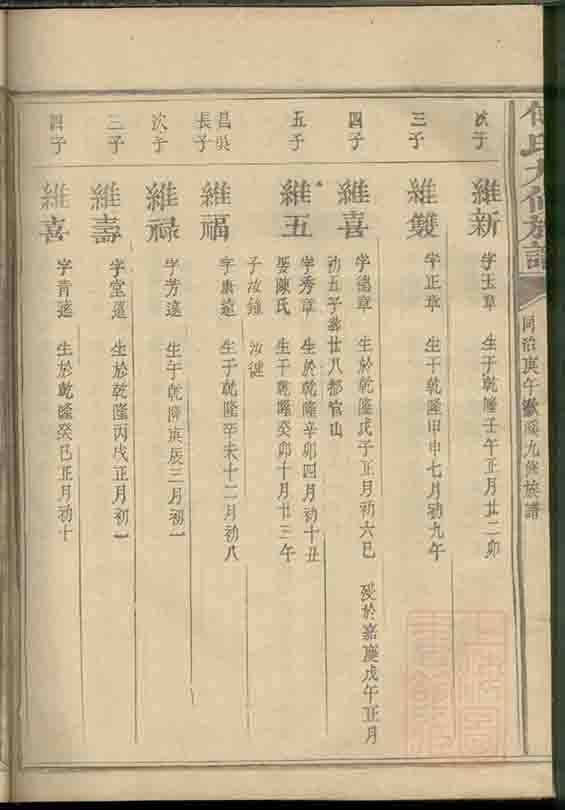 氏九修族譜
同治庚午敦睦九修族譜
次子
維新
字玉章 生于乾隆壬午正月廿二卯
三子
維雙
字正章 生于乾隆甲申七月初九午
四子
維喜
字德章 生於乾隆戊子正月初六巳 歿於嘉慶戊午正月
初五子葬廿八都官山
五子
維五
字秀章 生於乾隆辛卯四月初十丑
娶陳氏 生于乾隆癸卯十月廿三午
子汝鐘 汝健
昌吳
長子
維福
字康遠 生于乾隆辛未十二月初八
次子
維祿
字芳遠 生于乾隆庚辰三月初一
三子
維壽
字堂遠 生於乾隆丙戌正月初一
四子
維喜
字青遠 生於乾隆癸巳正月初十